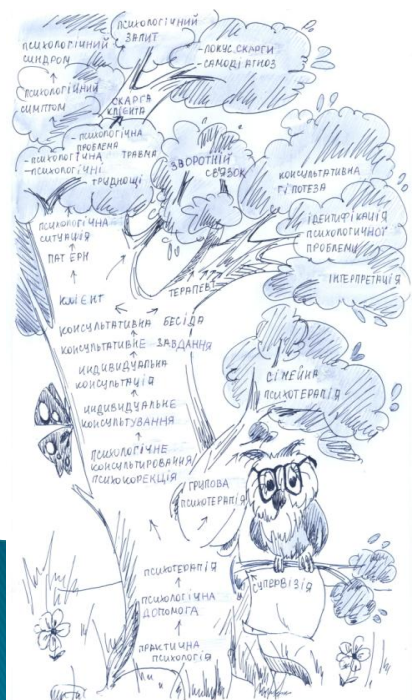 ПСИХОЛОГІЧНИЙ
ЗАПИТ
ПСИХОЛОГІЧНИЙ
СИНДРОМ
-ЛОКУС СКАРГИ
-САМОДІАГНОЗ
ПСИХОЛОГІЧНИЙ
СИМПТОМ
СКАРГА
КЛІЄНТА
-ПСИХОЛОГІЧНА
ПРОБЛЕМА
-ПСИХОЛОГІЧНА ТРАВМА
-ПСИХОЛОГІЧНІ
ТРУДНОЩІ
ЗВОРОТНІЙ
ЗВ'ЯЗОК
КОНСУЛЬТАТИВНА
ГІПОТЕЗА
ІДЕНТИФІКАЦІЯ
ПСИХОЛОГИЧНОЇ
ПРОБЛЕМИ
ІНТЕРПРЕТАЦІЯ
ПСИХОЛОГІЧНА
СИТУАЦІЯ
ПАТЕРН
КЛІЄНТ
ТЕРАПЕВТ
КОНСУЛЬТАТИВНА БЕСІДА
КОНСУЛЬТАТИВНЕ ЗАВДАННЯ
ИНДИВИДУАЛЬНА
КОНСУЛЬТАЦІЯ
ИНДИВИДУАЛЬНЕ
КОНСУЛЬТУВАННЯ
СІМЕЙНА
ПСИХОТЕРАПІЯ
ПСИХОЛОГІЧНЕ
КОНСУЛЬТИРОВАННЯ
ПСИХОКОРЕКЦІЯ
ГРУПОВА
ПСИХОТЕРАПІЯ
ПСИХОТЕРАПІЯ
СУПЕРВІЗІЯ
ПСИХОЛОГІЧНА
ДОПОМОГА
ПРАКТИЧНА
ПСИХОЛОГІЯ